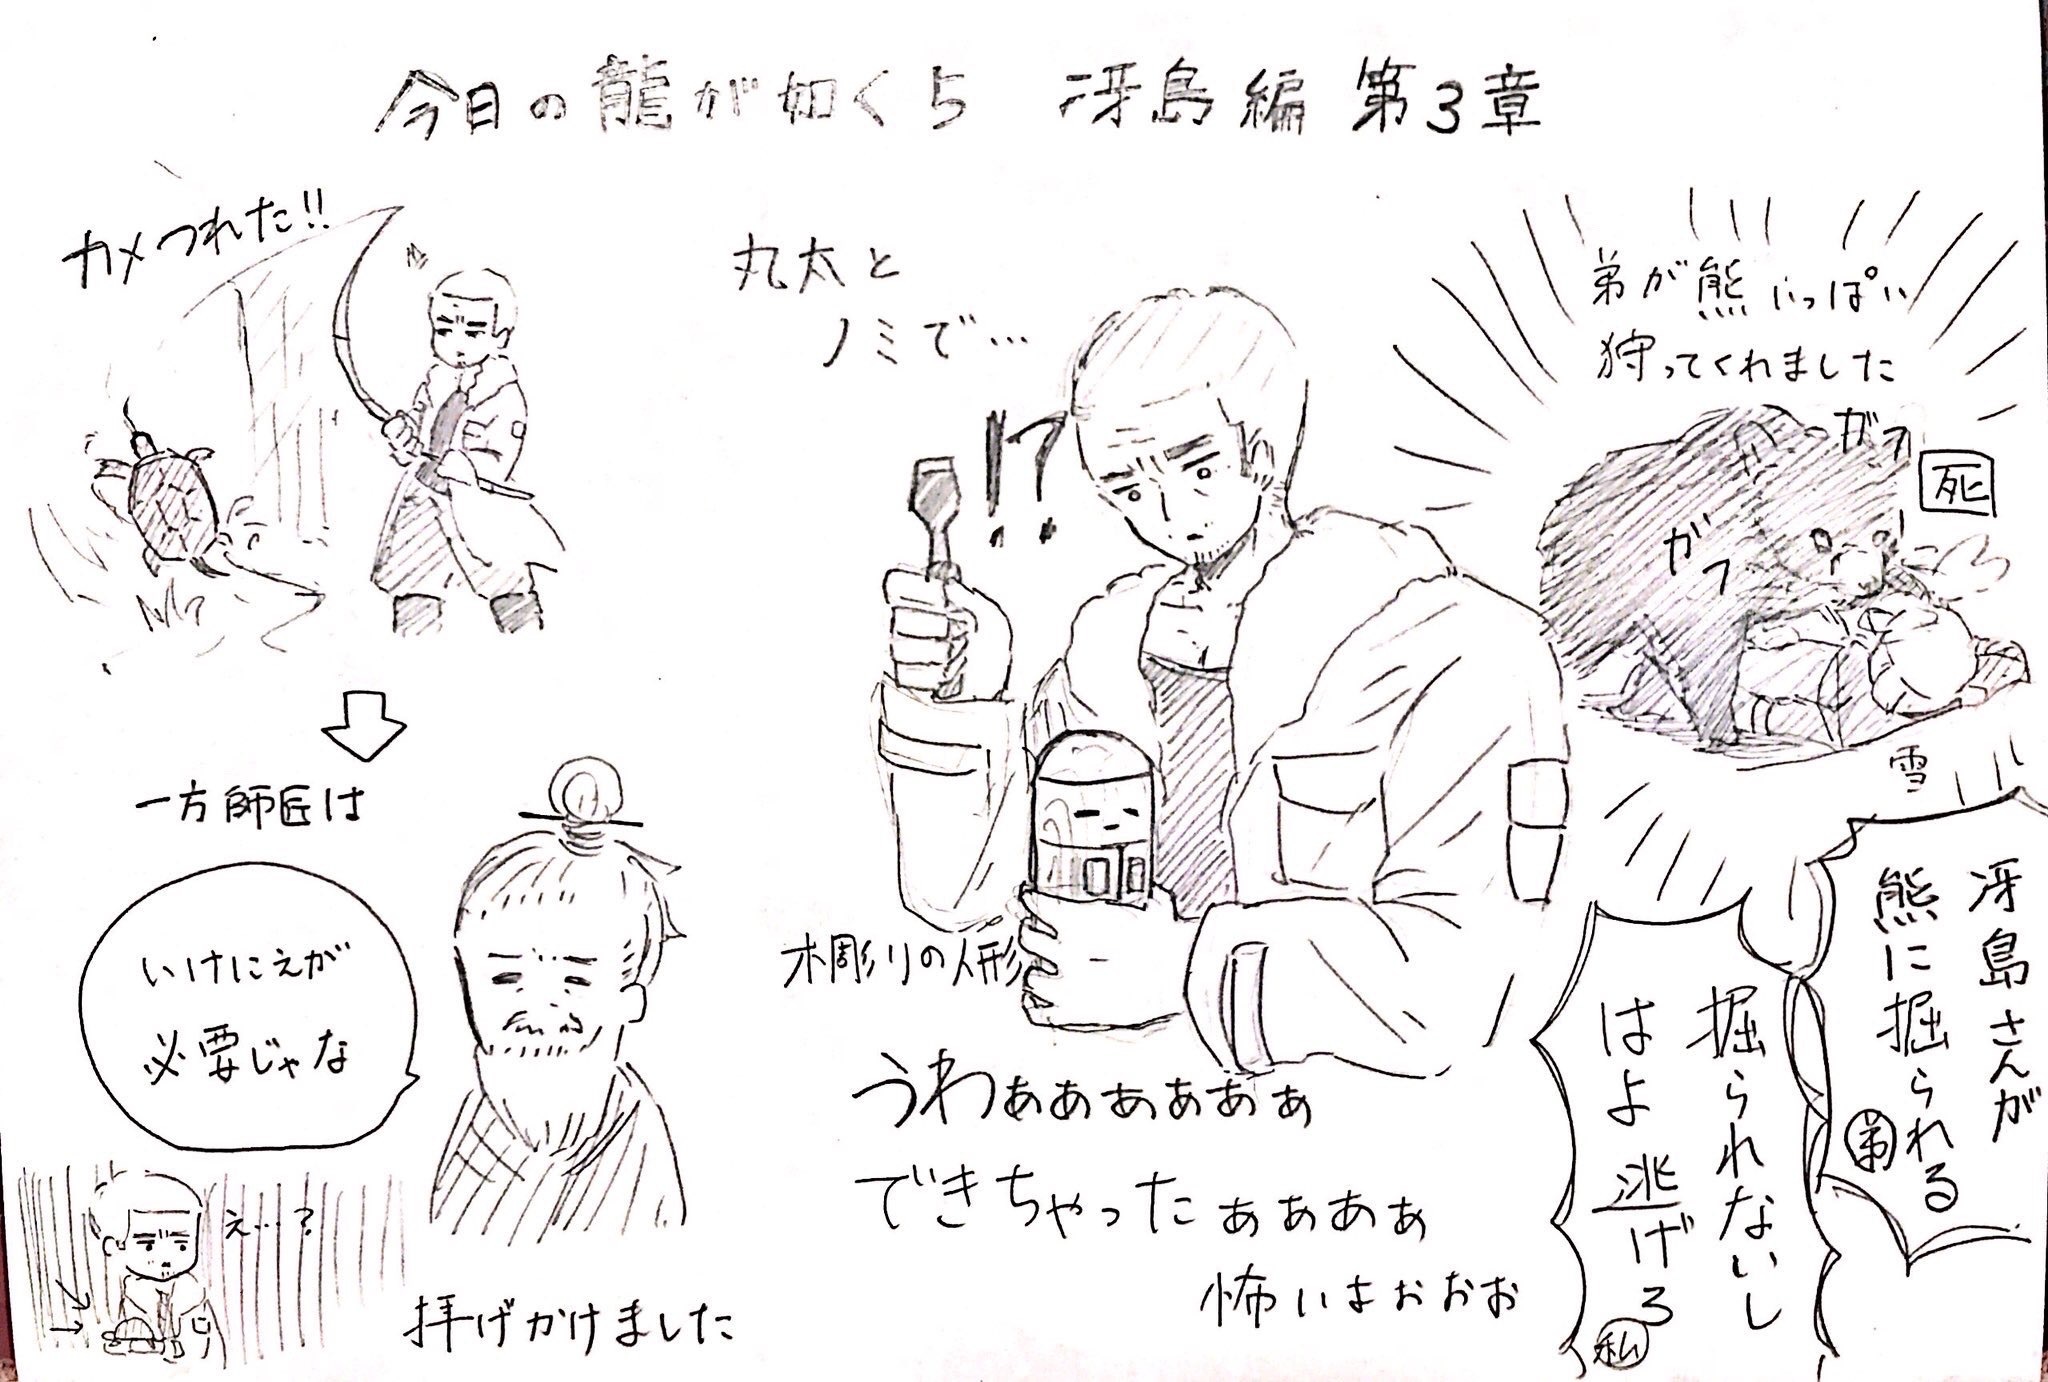 今日の龍が如く5 冴島編 第3章
カメつれた!!
一方師匠は
いけにえが
必要じゃな
え…?
拝げかけました
丸太と
ノミで…
!?
木彫りの人形
うわぁぁぁぁぁぁ
できちゃったぁぁぁぁ
怖いよぉぉぉ
弟が熊いっぱい
狩ってくれました
ガフ
ガフ
死
雪
冴島さんが
熊に掘られる
弟
掘られないし
はよ逃げろ
私